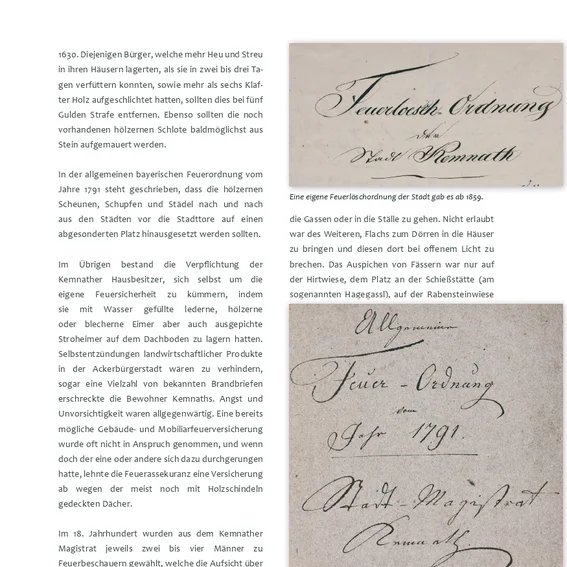 1630. Diejenigen Bürger, welche mehr Heu und Streu
in ihren Häusern lagerten, als sie in zwei bis drei Ta-
gen verfüttern konnten, sowie mehr als sechs Klaf-
ter Holz aufgeschlichtet hatten, sollten dies bei fünf
Gulden Strafe entfernen. Ebenso sollten die noch
vorhandenen hölzernen Schlote baldmöglichst aus
Stein aufgemauert werden.
In der allgemeinen bayerischen Feuerordnung vom
Jahre 1791 steht geschrieben, dass die hölzernen
Scheunen, Schupfen und Städel nach und nach
aus den Städten vor die Stadttore auf einen
abgesonderten Platz hinausgesetzt werden sollten.
Im Übrigen bestand die Verpflichtung der
Kemnather Hausbesitzer, sich selbst um die
eigene Feuersicherheit zu kümmern, indem
sie mit Wasser gefüllte lederne, hölzerne
oder blecherne Eimer aber auch ausgepichte
Stroheimer auf dem Dachboden zu lagern hatten.
Selbstentzündungen landwirtschaftlicher Produkte
in der Ackerbürgerstadt wären zu verhindern,
sogar eine Vielzahl von bekannten Brandbriefen
erschreckte die Bewohner Kemnaths. Angst und
Unvorsichtigkeit waren allgegenwärtig. Eine bereits
mögliche Gebäude- und Mobiliarfeuerversicherung
wurde oft nicht in Anspruch genommen, und wenn
doch der eine oder andere sich dazu durchgerungen
hatte, lehnte die Feuerassekuranz eine Versicherung
ab wegen der meist noch mit Holzschindeln
gedeckten Dächer.
Im 18. Jahrhundert wurden aus dem Kemnather
Magistrat jeweils zwei bis vier Männer zu
Feuerbeschauern gewählt, welche die Aufsicht über
Feuerloesch-Ordnung
der
Stadt Kemnath
Eine eigene Feuerlöschordnung der Stadt gab es ab 1859.
die Gassen oder in die Ställe zu gehen. Nicht erlaubt
war des Weiteren, Flachs zum Dörren in die Häuser
zu bringen und diesen dort bei offenem Licht zu
brechen. Das Auspichen von Fässern war nur auf
der Hirtwiese, dem Platz an der Schießstätte (am
sogenannten Hagegassl), auf der Rabensteinwiese
Allgemeine
Feuer-Ordnung
vom
Jahr 1791.
Stadt-Magistrat
Kemnath.